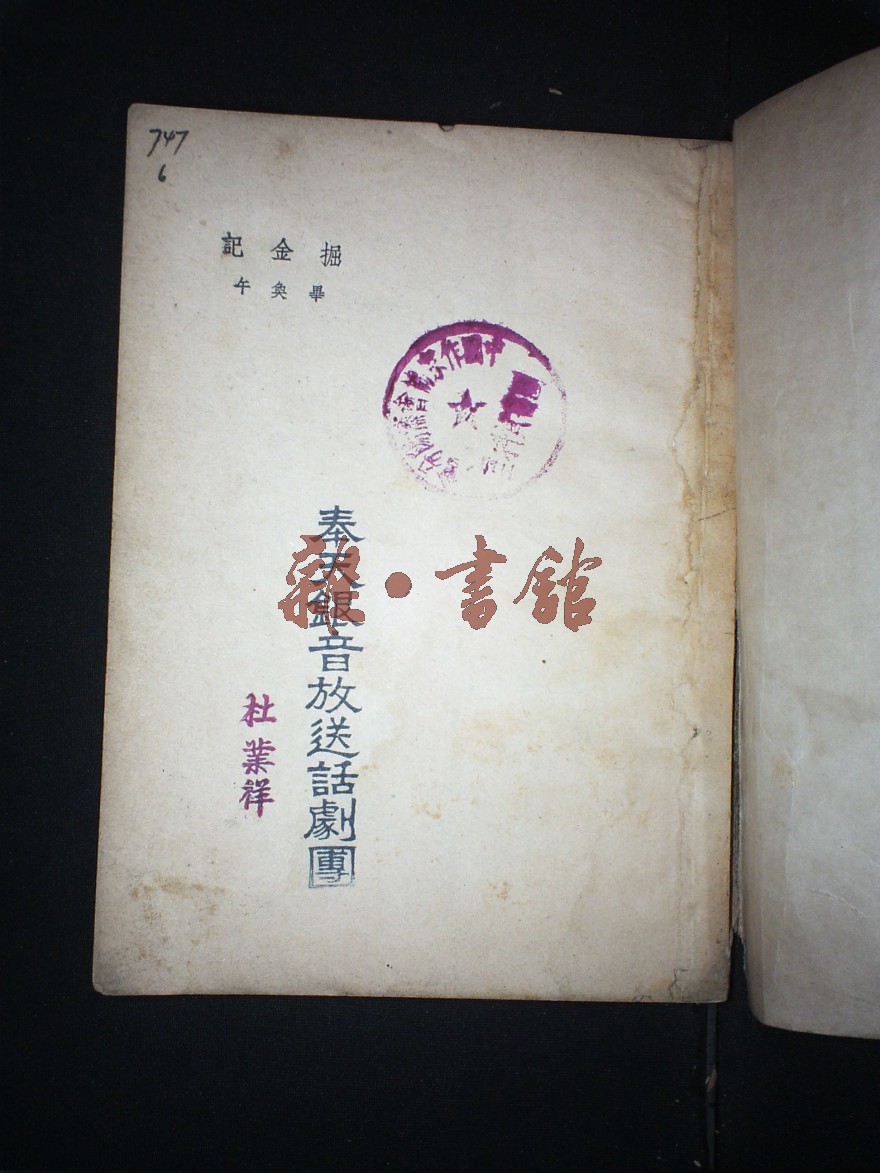 747
6
掘金記
畢奐午
中國作家協會
奉天銀音放送話劇團
杜業祥
報·書館